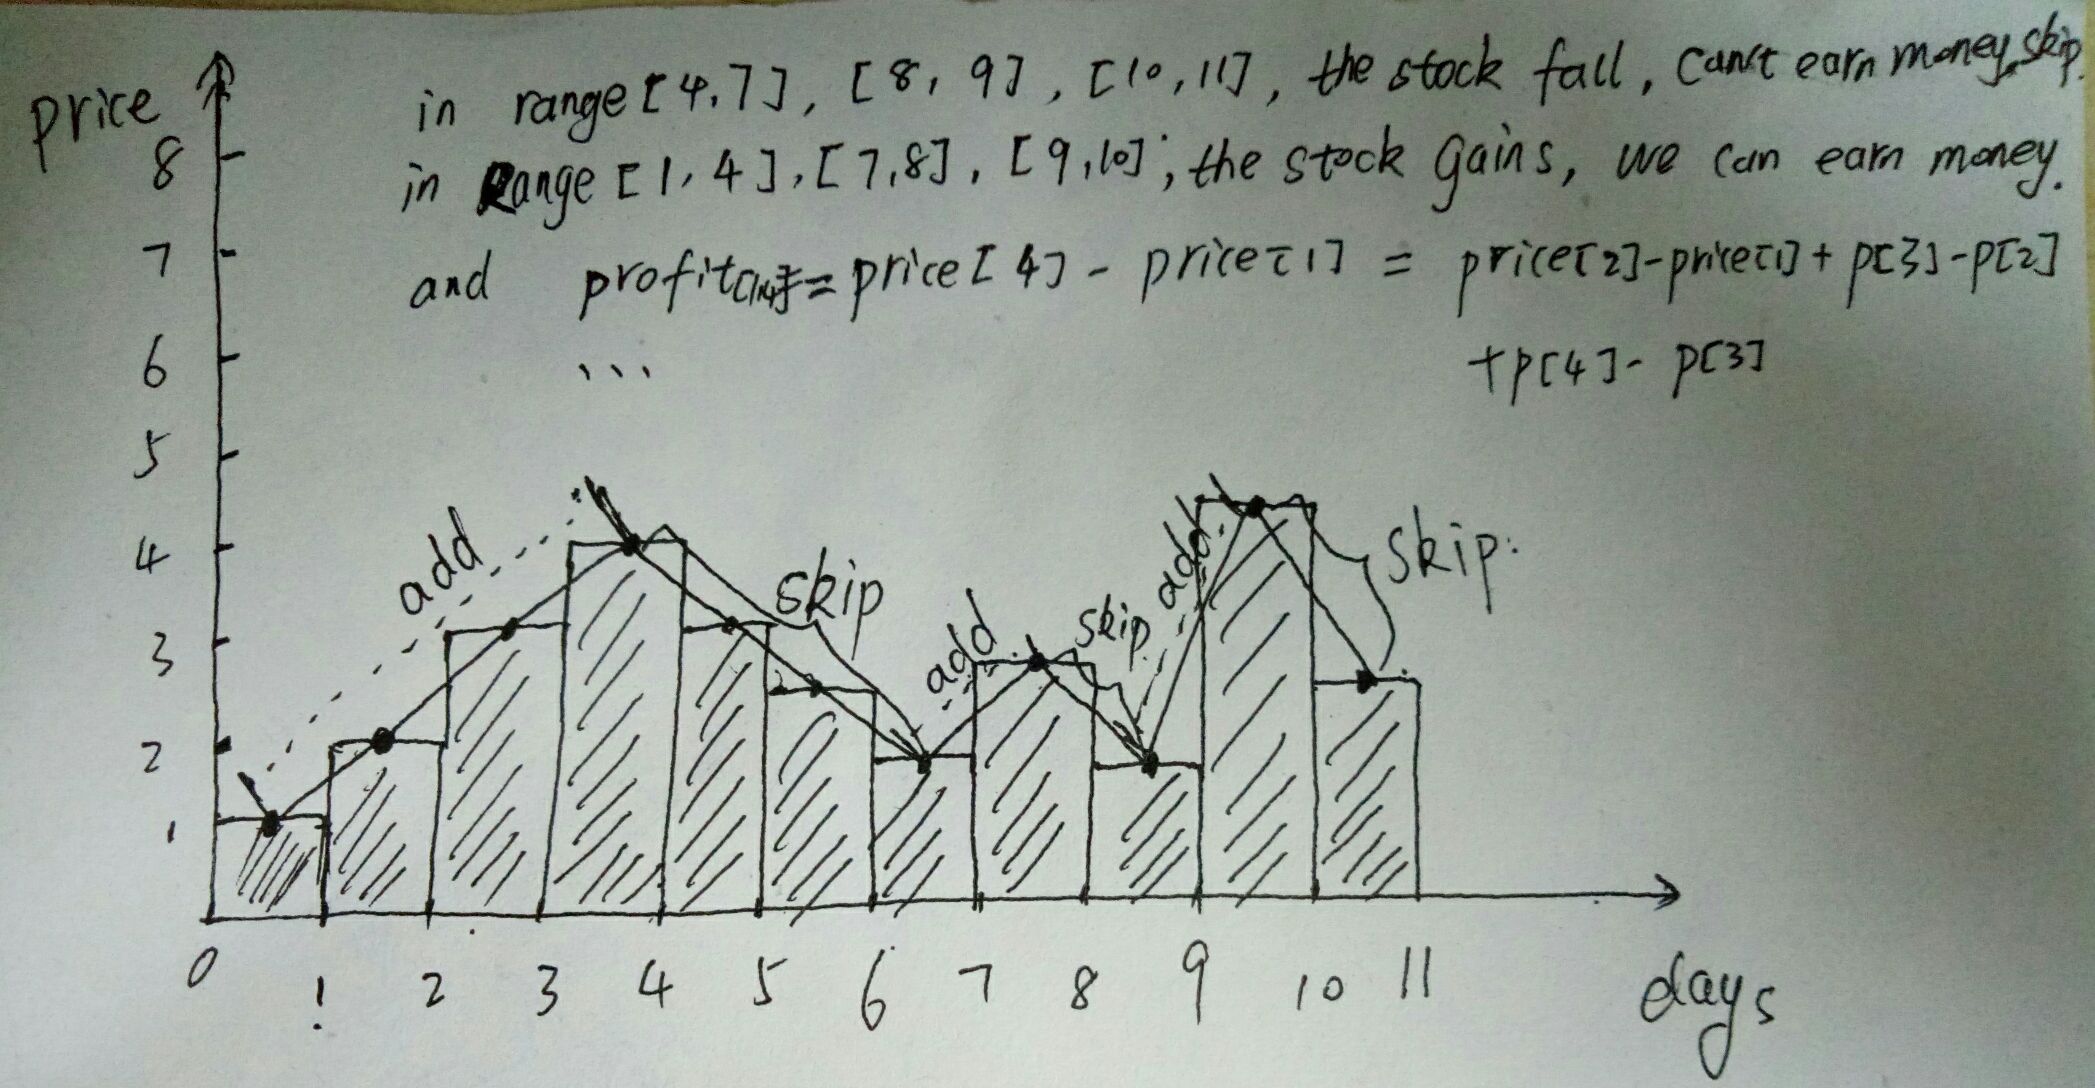 price
in range [4,7], [8, 9], [10,11], the stock fall, can't earn money, skip.
in Range [1,4], [7,8], [9,10], the stock gains, we can earn money.
and profit[1,4] = price[4] - price[1] = price[2]-price[1] + p[3]-p[2]
... +p[4]- p[3]
8
7
6
5
4
3
2
1
add
skip
add
skip
add
skip
0 1 2 3 4 5 6 7 8 9 10 11
days